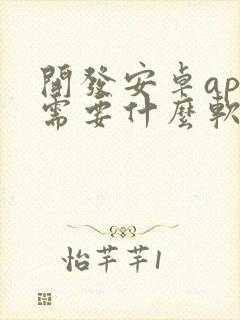 開發安卓ap
需要什麼軟
怡芊芊1